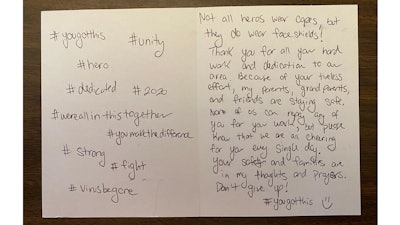 #yougotthis
#unity
#hero
#dedicated
#2020
#wereallinthistogether
#youmakethedifference
#strong
#fight
#virusbegone
Not all heros wear capes, but
they do wear face shields!
Thank you for all your hard
work and dedication to our
area. Because of your tireless
effort, my parents, grandparents,
and friends are staying safe.
None of us can repay any of
you for your work, but please
know that we are all cheering
for you every single day.
Your and families are
in my thoughts and prayers.
Don't give up!
#yougotthis